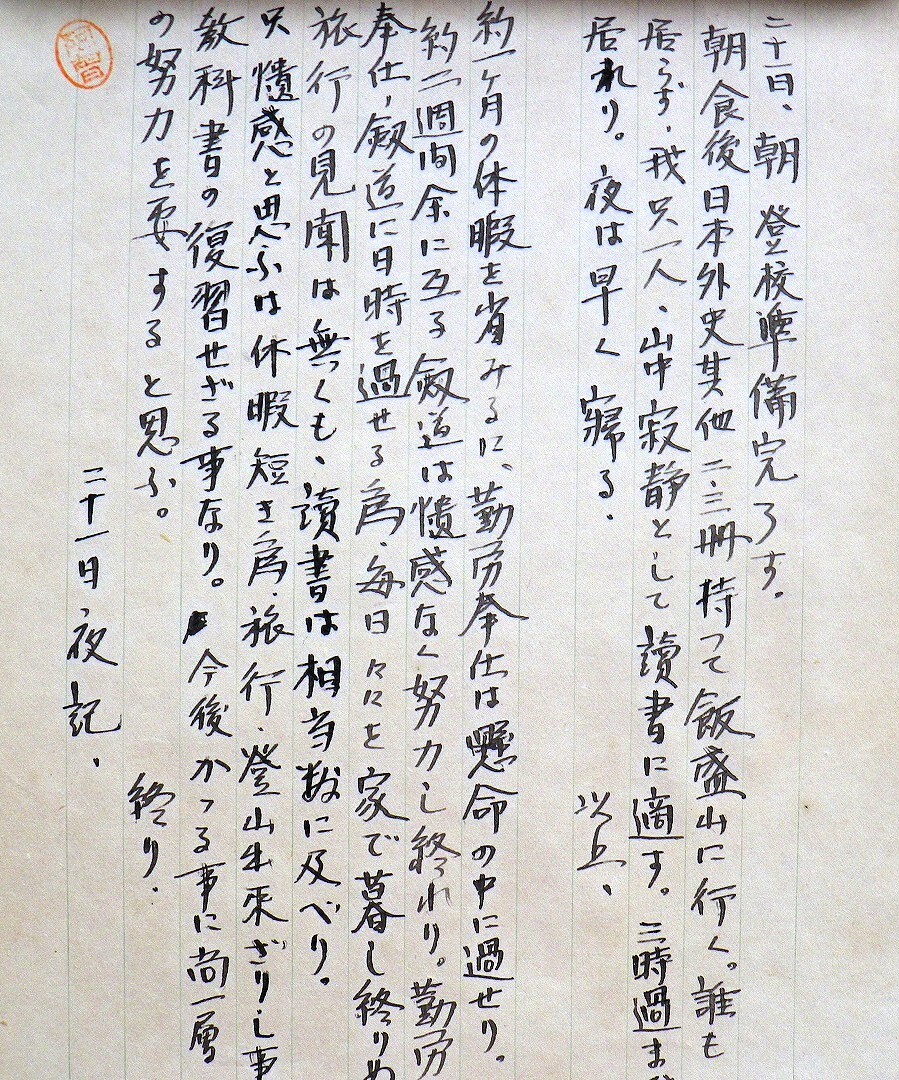 二十日、朝 登校準備完了す。
朝食後日本外史其他二、三冊持って飯盛山に行く。誰も
居らず、我只一人、山中寂静として讀書に適す。三時過ま
居れり。夜は早く寢る。 以上、
約一ヶ月の休暇を省みるに、勤労奉仕は懸命の中に過せり。
約二週间余に亙る劔道は憤感なく努力し終れり。勤労
奉仕、劔道に日時を過せる為、毎日々々を家で暮し終りぬ
旅行の見聞は無くも、讀書は相当数に及べり。
只憤感と思ふは休暇短き為、旅行、登山出来ざりし事
教科書の復習せざる事なり。今後かゝる事に尚一層
の努力を要すると思ふ。 終り.
二十一日夜記、